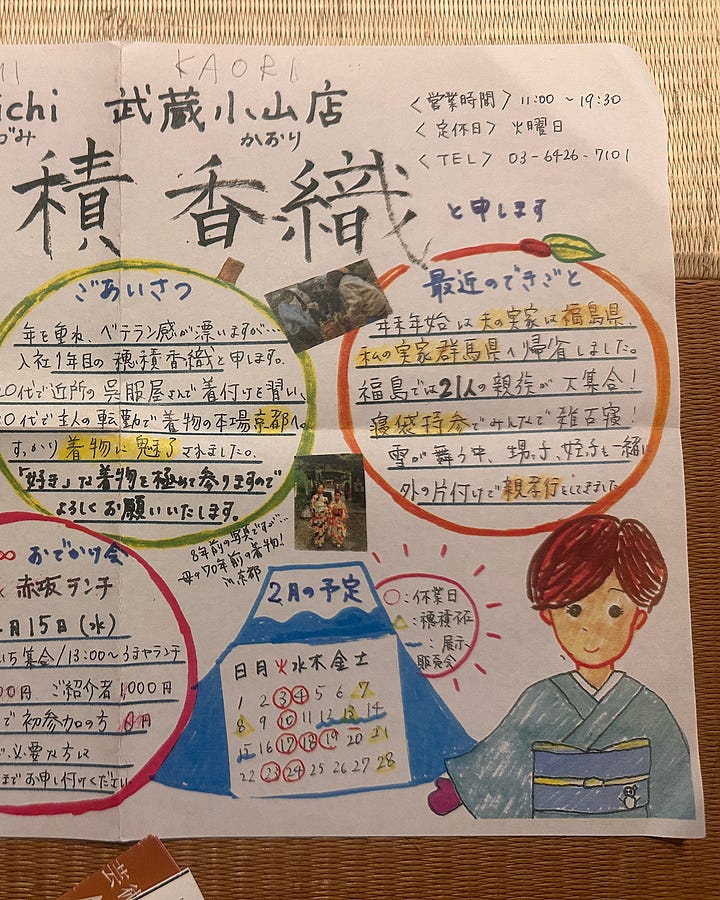 KAORI
ichi 武蔵小山店
づみ かおり
積 香織 と申します
〈営業時間〉 11:00 ~ 19:30
〈定休日〉 火曜日
〈TEL〉 03-6426-7101
ごあいさつ
年を重ね、ベテラン感が漂いますが…
入社1年目の 穂積香織と申します。
20代で近所の呉服屋さんで着付けを習い、
0代で主人の転勤で着物の本場京都へ。
すっかり着物に魅了されました。
「好き」な着物を極めて参りますので
よろしくお願いいたします。
最近のできごと
年末年始は夫の実家は福島県、
私の実家群馬県へ帰省しました。
福島では21人の親族が大集合!
寝袋持参でみんなで雑魚寝!
雪が舞う中、甥っ子、姪っ子も一緒に
外の片付けで親孝行をしてきました。
8年前の写真ですが…
母の70年前の着物!
in京都
おでかけ会
赤坂ランチ
月15日(水)
集合/13:00~うまやランチ
00円 ご紹介者 1,000円
で 初参加の方 0円
必要な方は
までお申し付けください
2月の予定
日 月 火 水 木 金 土
1 2 3 4 5 6 7
8 9 10 11 12 13 14
15 16 17 18 19 20 21
22 23 24 25 26 27 28
○:休業日
△:穂積
ー:展示
販売会